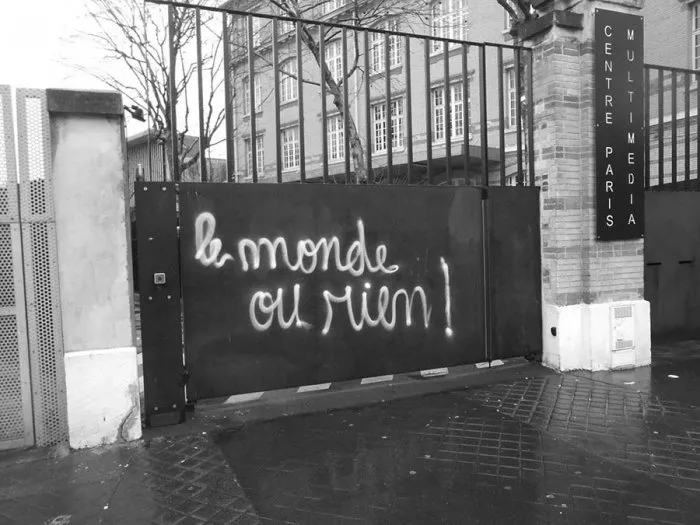 le monde
ou rien !
CENTRE PARIS
MULTIMEDIA